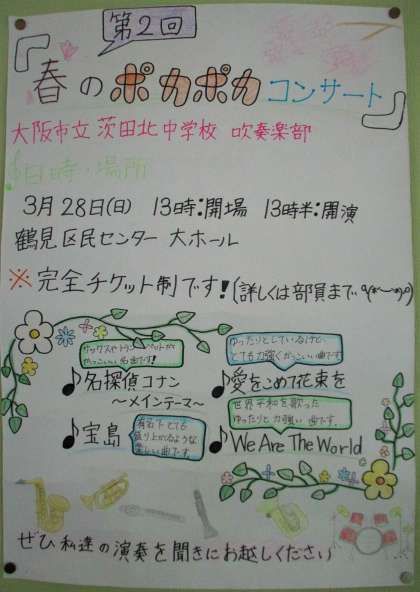 第2回
『春のポカポカコンサート』
大阪市立茨田北中学校 吹奏楽部
日時・場所
3月28日(日) 13時:開場 13時半:開演
鶴見区民センター 大ホール
※完全チケット制です!(詳しくは部員まで
サックスやトランペットが
かっこいい名曲です!
♪名探偵コナン
〜メインテーマ〜
ゆったりとしているけど、
とても力強くかっこいい曲です!
♪愛をこめて花束を
有名でとても
盛り上がるような
楽しい曲です。
♪宝島
世界平和を歌った
ゆったりと力強い曲です。
♪We Are The World
ぜひ私達の演奏を聞きにお越しください